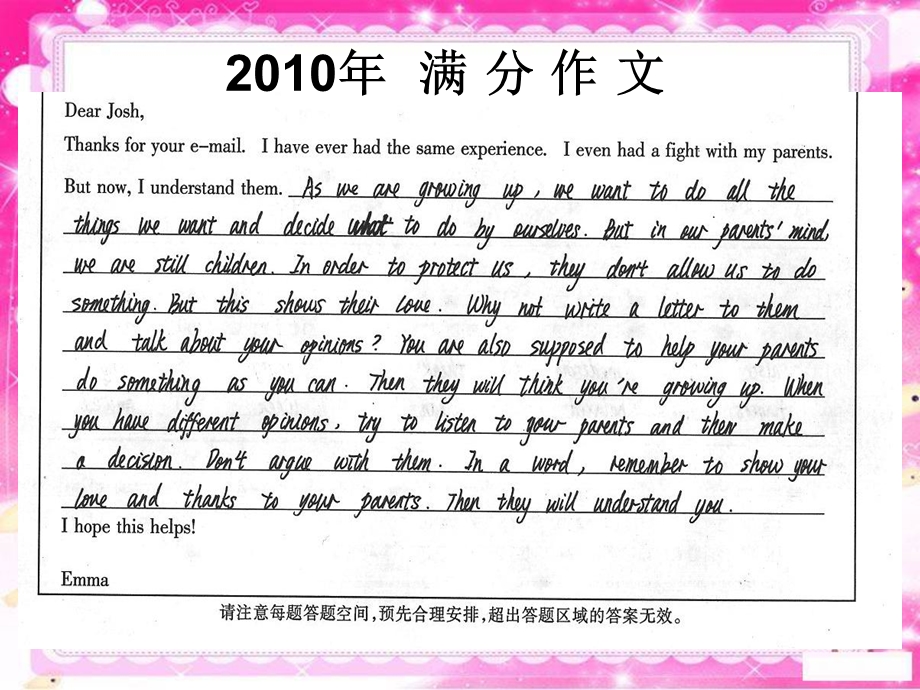 2010年 满 分 作 文
Dear Josh,
Thanks for your e-mail. I have ever had the same experience. I even had a fight with my parents.
But now, I understand them. As we are growing up, we want to do all the
things we want and decide what to do by ourselves. But in our parents' mind,
we are still children. In order to protect us, they don't allow us to do
something. But this shows their love. Why not write a letter to them
and talk about your opinions? You are also supposed to help your parents
do something as you can. Then they will think you're growing up. When
you have different opinions, try to listen to your parents and then make
a decision. Don't argue with them. In a word, remember to show your
love and thanks to your parents. Then they will understand you.
I hope this helps!
Emma
请注意每题答题空间,预先合理安排,超出答题区域的答案无效。